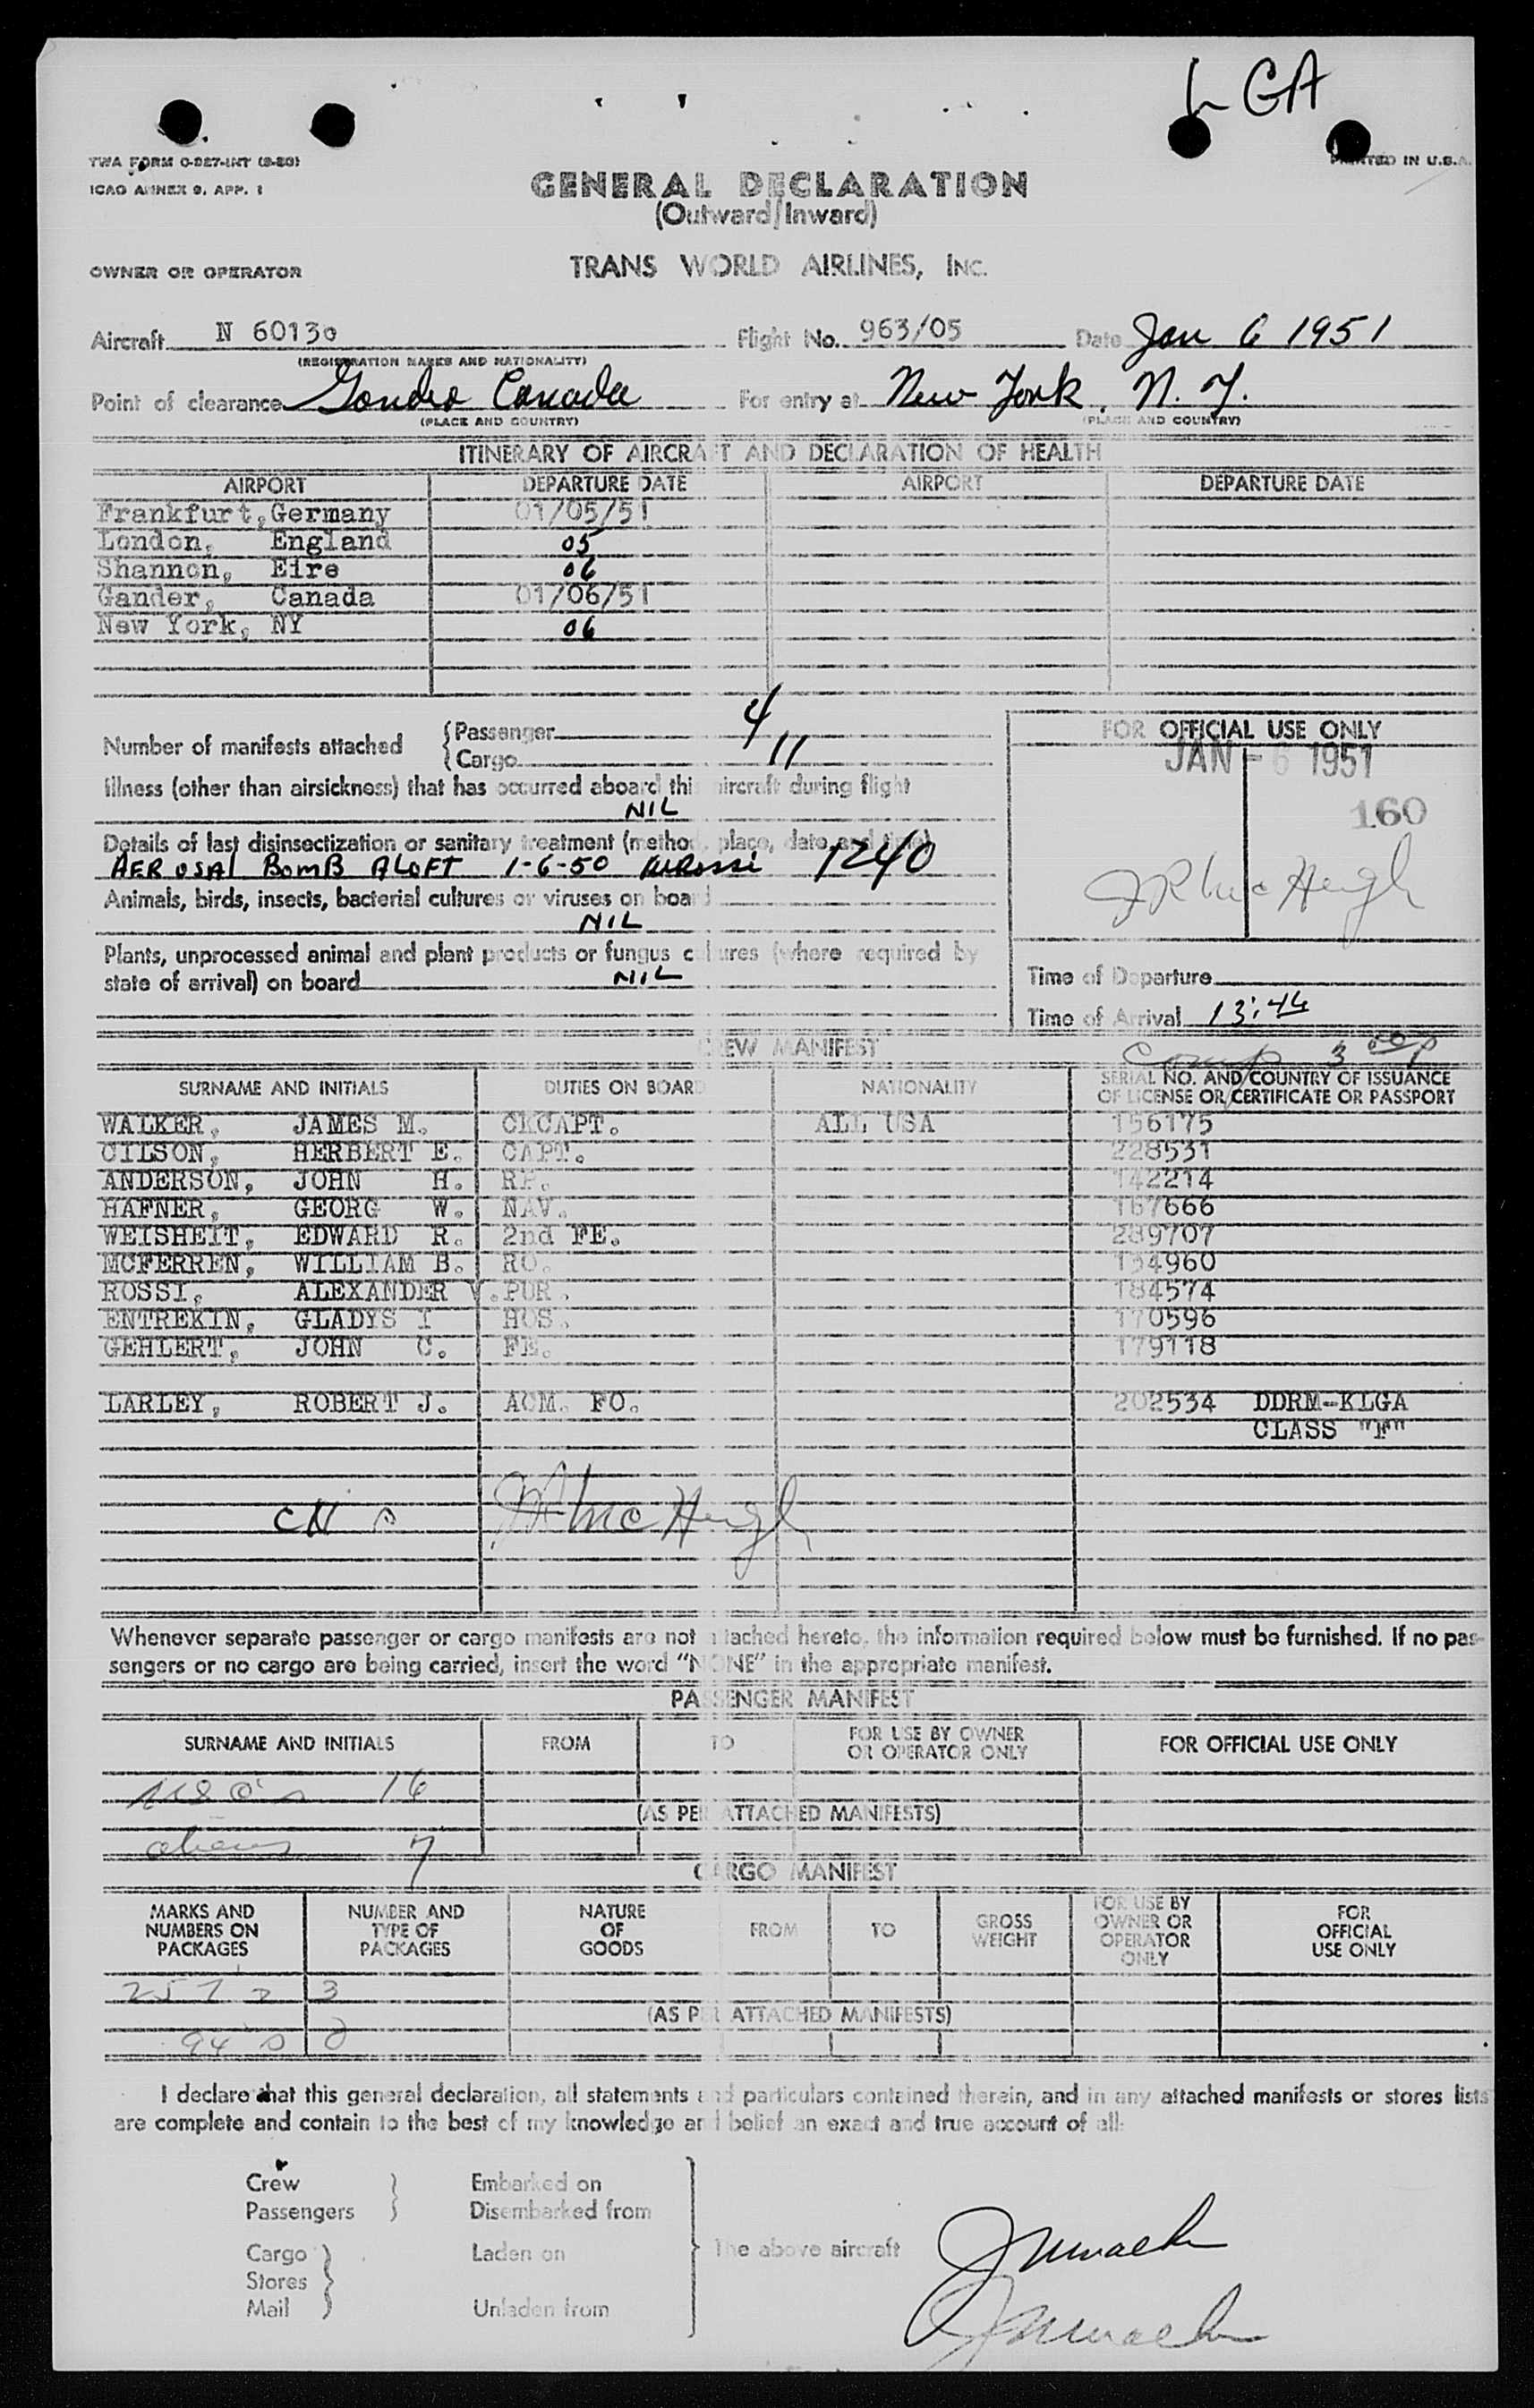 L GA
TWA FORM O-927-INT (8-50)
PRINTED IN U.S.A.
ICAO ANNEX 9, APP. 1
GENERAL DECLARATION
(Outward/Inward)
OWNER OR OPERATOR
TRANS WORLD AIRLINES, INC.
Aircraft N 60130 Flight No. 963/05 Date Jan 6 1951
(REGISTRATION MARKS AND NATIONALITY)
Point of clearance Gander Canada For entry at New York, N.Y.
(PLACE AND COUNTRY) (PLACE AND COUNTRY)
ITINERARY OF AIRCRAFT AND DECLARATION OF HEALTH
AIRPORT DEPARTURE DATE AIRPORT DEPARTURE DATE
Frankfurt, Germany 01/05/51
London, England 05
Shannon, Eire 06
Gander, Canada 01/06/51
New York, NY 06
Number of manifests attached
Passenger 4
Cargo 11
Illness (other than airsickness) that has occurred aboard this aircraft during flight
NIL
Details of last disinsectization or sanitary treatment (method, place, date and time)
AEROSAL BOMB ALOFT 1-6-50 1240
Animals, birds, insects, bacterial cultures or viruses on board
NIL
Plants, unprocessed animal and plant products or fungus cultures (where required by
state of arrival) on board NIL
FOR OFFICIAL USE ONLY
JAN - 6 1951
160
JR McHeugh
Time of Departure
Time of Arrival 13:46
CREW MANIFEST
SURNAME AND INITIALS DUTIES ON BOARD NATIONALITY SERIAL NO. AND COUNTRY OF ISSUANCE
OF LICENSE OR CERTIFICATE OR PASSPORT
WALKER, JAMES M. CKCAPT. ALL USA 156175
CILSON, HERBERT E. CAPT. 228531
ANDERSON, JOHN H. RP. 142214
HAFNER, GEORG W. NAV. 167666
WEISHEIT, EDWARD R. 2nd FE. 289707
MCFERREN, WILLIAM B. RO. 134960
ROSSI, ALEXANDER V. PUR. 184574
ENTREKIN, GLADYS I HOS. 170596
GEHLERT, JOHN C. FE. 179118
LARLEY, ROBERT J. ACM. FO. 202534 DDRM-KLGA
CLASS "F"
JR McHeugh
Whenever separate passenger or cargo manifests are not attached hereto, the information required below must be furnished. If no pas-
sengers or no cargo are being carried, insert the word "NONE" in the appropriate manifest.
PASSENGER MANIFEST
SURNAME AND INITIALS FROM TO FOR USE BY OWNER
OR OPERATOR ONLY
FOR OFFICIAL USE ONLY
16
(AS PER ATTACHED MANIFESTS)
aliens 7
CARGO MANIFEST
MARKS AND
NUMBERS ON
PACKAGES
NUMBER AND
TYPE OF
PACKAGES
NATURE
OF
GOODS
FROM
TO
GROSS
WEIGHT
FOR USE BY
OWNER OR
OPERATOR
ONLY
FOR
OFFICIAL
USE ONLY
3
(AS PER ATTACHED MANIFESTS)
94's 0
I declare that this general declaration, all statements and particulars contained therein, and in any attached manifests or stores lists
are complete and contain to the best of my knowledge and belief an exact and true account of all:
Crew
Passengers
Embarked on
Disembarked from
Cargo
Stores
Mail
Laden on
Unladen from
The above aircraft